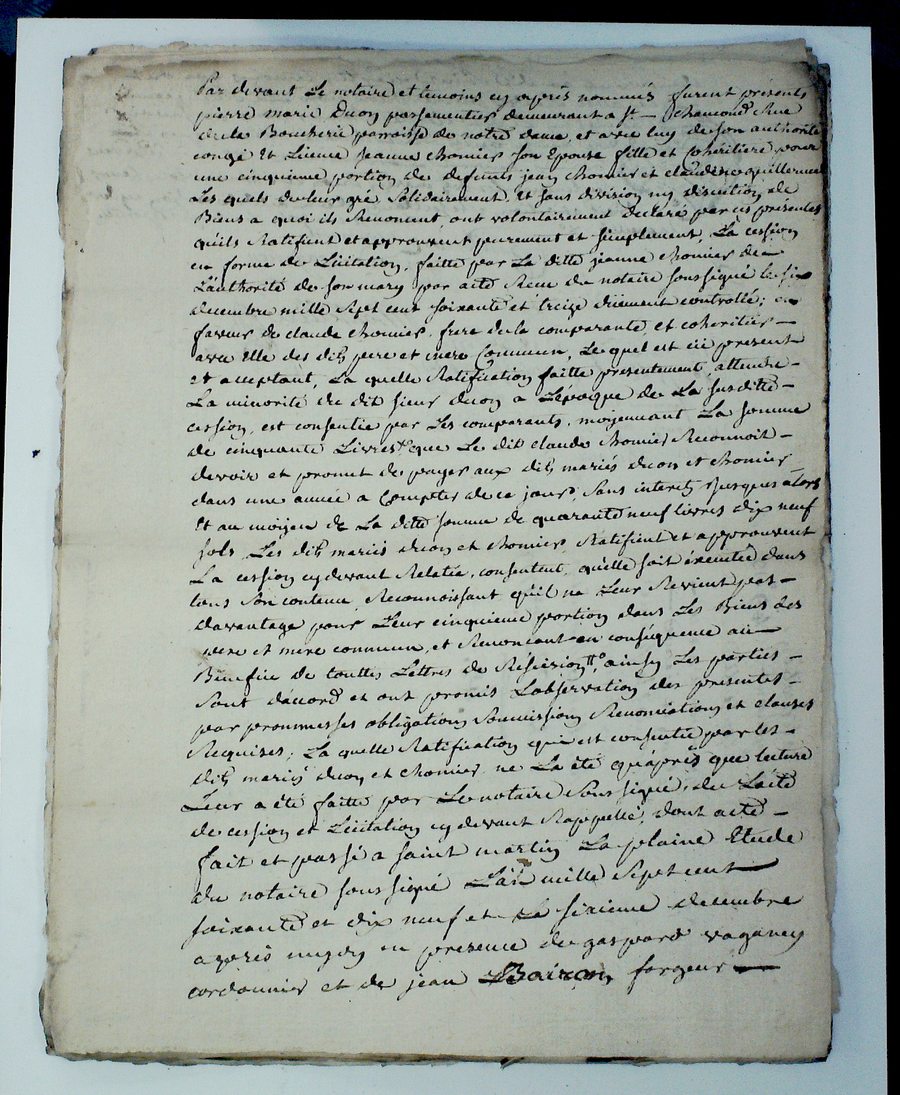 Par devant Le notaire et temoins cy apres nommés furent présents
pierre marie Ducon passementier demeurant a St. Chamond Rue
de la Boucherie parroisse de notre dame, et avec luy de son authorité
congé et Licence Jeanne chomier son Epouse fille et Cohéritiere pour
une cinquieme portion de defunts jean chomier et claudine
Les quels de leur gré Solidairement et sans division ny discution de
Biens a quoi ils Renoncent, ont volontairement declaré par ces présentes
qu'ils Ratifient et approuvent purement et simplement, La cession
en forme de Licitation, faitte par La ditte jeanne chomier de
L'authorité de son mary par acte Recu du notaire soussigné le six
decembre mille Sept cent soixante et treize duement controllé; en
faveur de claude chomier, frere de la comparante et coheritier
avec Elle des dits pere et mere commun, Le quel est ici present
et acceptant, La quelle Ratification faitte presentement, attendu
La minorité du dit sieur ducon a L'époque de La susditte
cession, est consentie par Les comparants, moyennant La somme
de cinquante Livres que Le dit claude chomier Reconnoit
devoir et promet de payer aux dits mariés ducon et chomier
dans une année a compter de ce jour, Sans interets jusques alors
Et au moyen de La ditte somme de quarante neuf livres dix neuf
sols, Les dits mariés ducon et chomier Ratifient et approuvent
La cession cy devant Relatée, consentent qu'elle soit éxécutée dans
tous Son contenu, Reconnoissant qu'il ne Leur Revient pas
davantage pour Leur cinquieme portion dans Les Biens des
pere et mere commun, et Renoncent en conséquence au
Bénéfice de touttes Lettres de Rescizion, ainsy Les parties
Sont d'accord et ont promis L'observation des presentes
par prommesses obligations Soumissions Renonciations et clauses
Requises; La quelle Ratification qui est consentie par les
dits mariés ducon et chomier ne La été qu'après que lecture
Leur a été faitte par Le notaire Soussigné, de L'acte
de cession et Licitation cy devant Rappellé, dont acte
fait et passé a saint martin La plaine Etude
du notaire soussigné L'an mille Sept cent
soixante et dix neuf et Le sixieme decembre
apres midy en presence de gaspard vaganey
cordonnier et de jean Bairon, forgeur